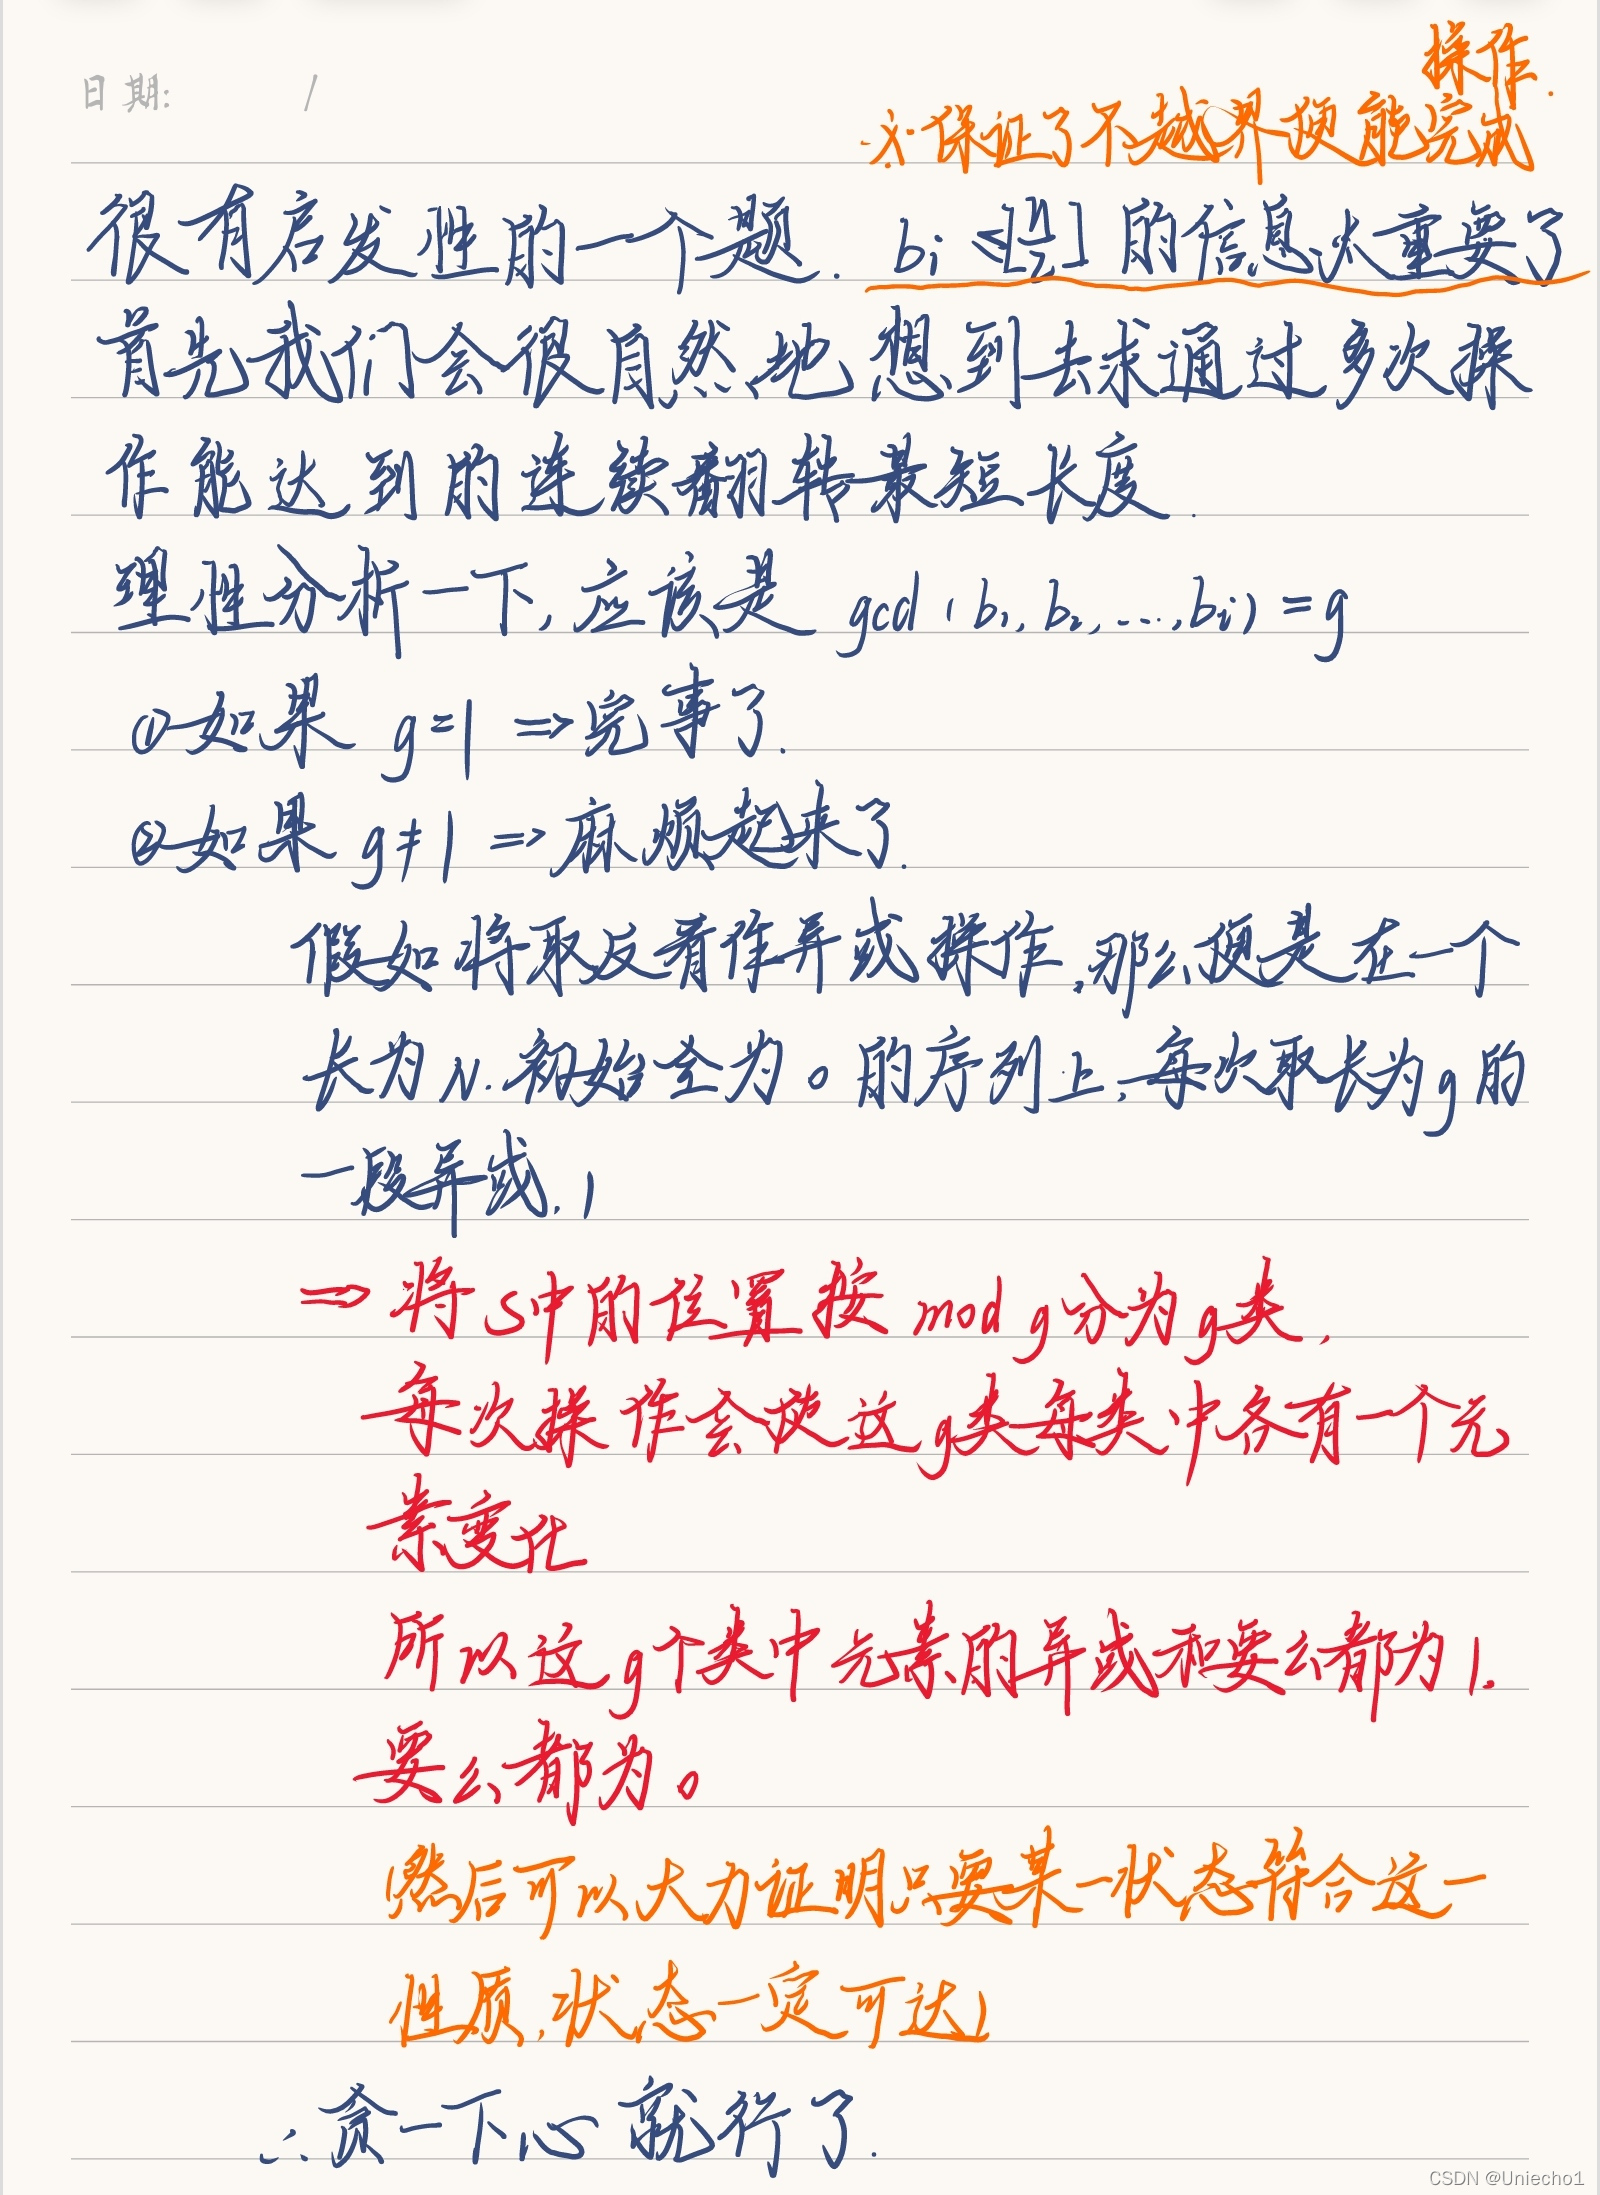 日期: /
操作.
※保证了不越界便能完成
很有启发性的一个题. bi ≤[n/2] 的信息太重要了
首先我们会很自然地想到去求通过多次操
作能达到的连续翻转最短长度.
理性分析一下, 应该是 gcd (b1, b2, ..., bi) = g
①如果 g=1 ⇒完事了.
②如果 g≠1 ⇒麻烦起来了.
假如将取反看作异或操作,那么便是在一个
长为N.初始全为0的序列上,每次取长为g的
一段异或.1
⇒将S中的位置按 mod g分为g类,
每次操作会使这g类每类中各有一个元
素变化
所以这g个类中元素的异或和要么都为1.
要么都为0
(然后可以大力证明只要某一状态符合这一
性质,状态一定可达)
∴贪一下心就行了.
CSDN @Uniecho1